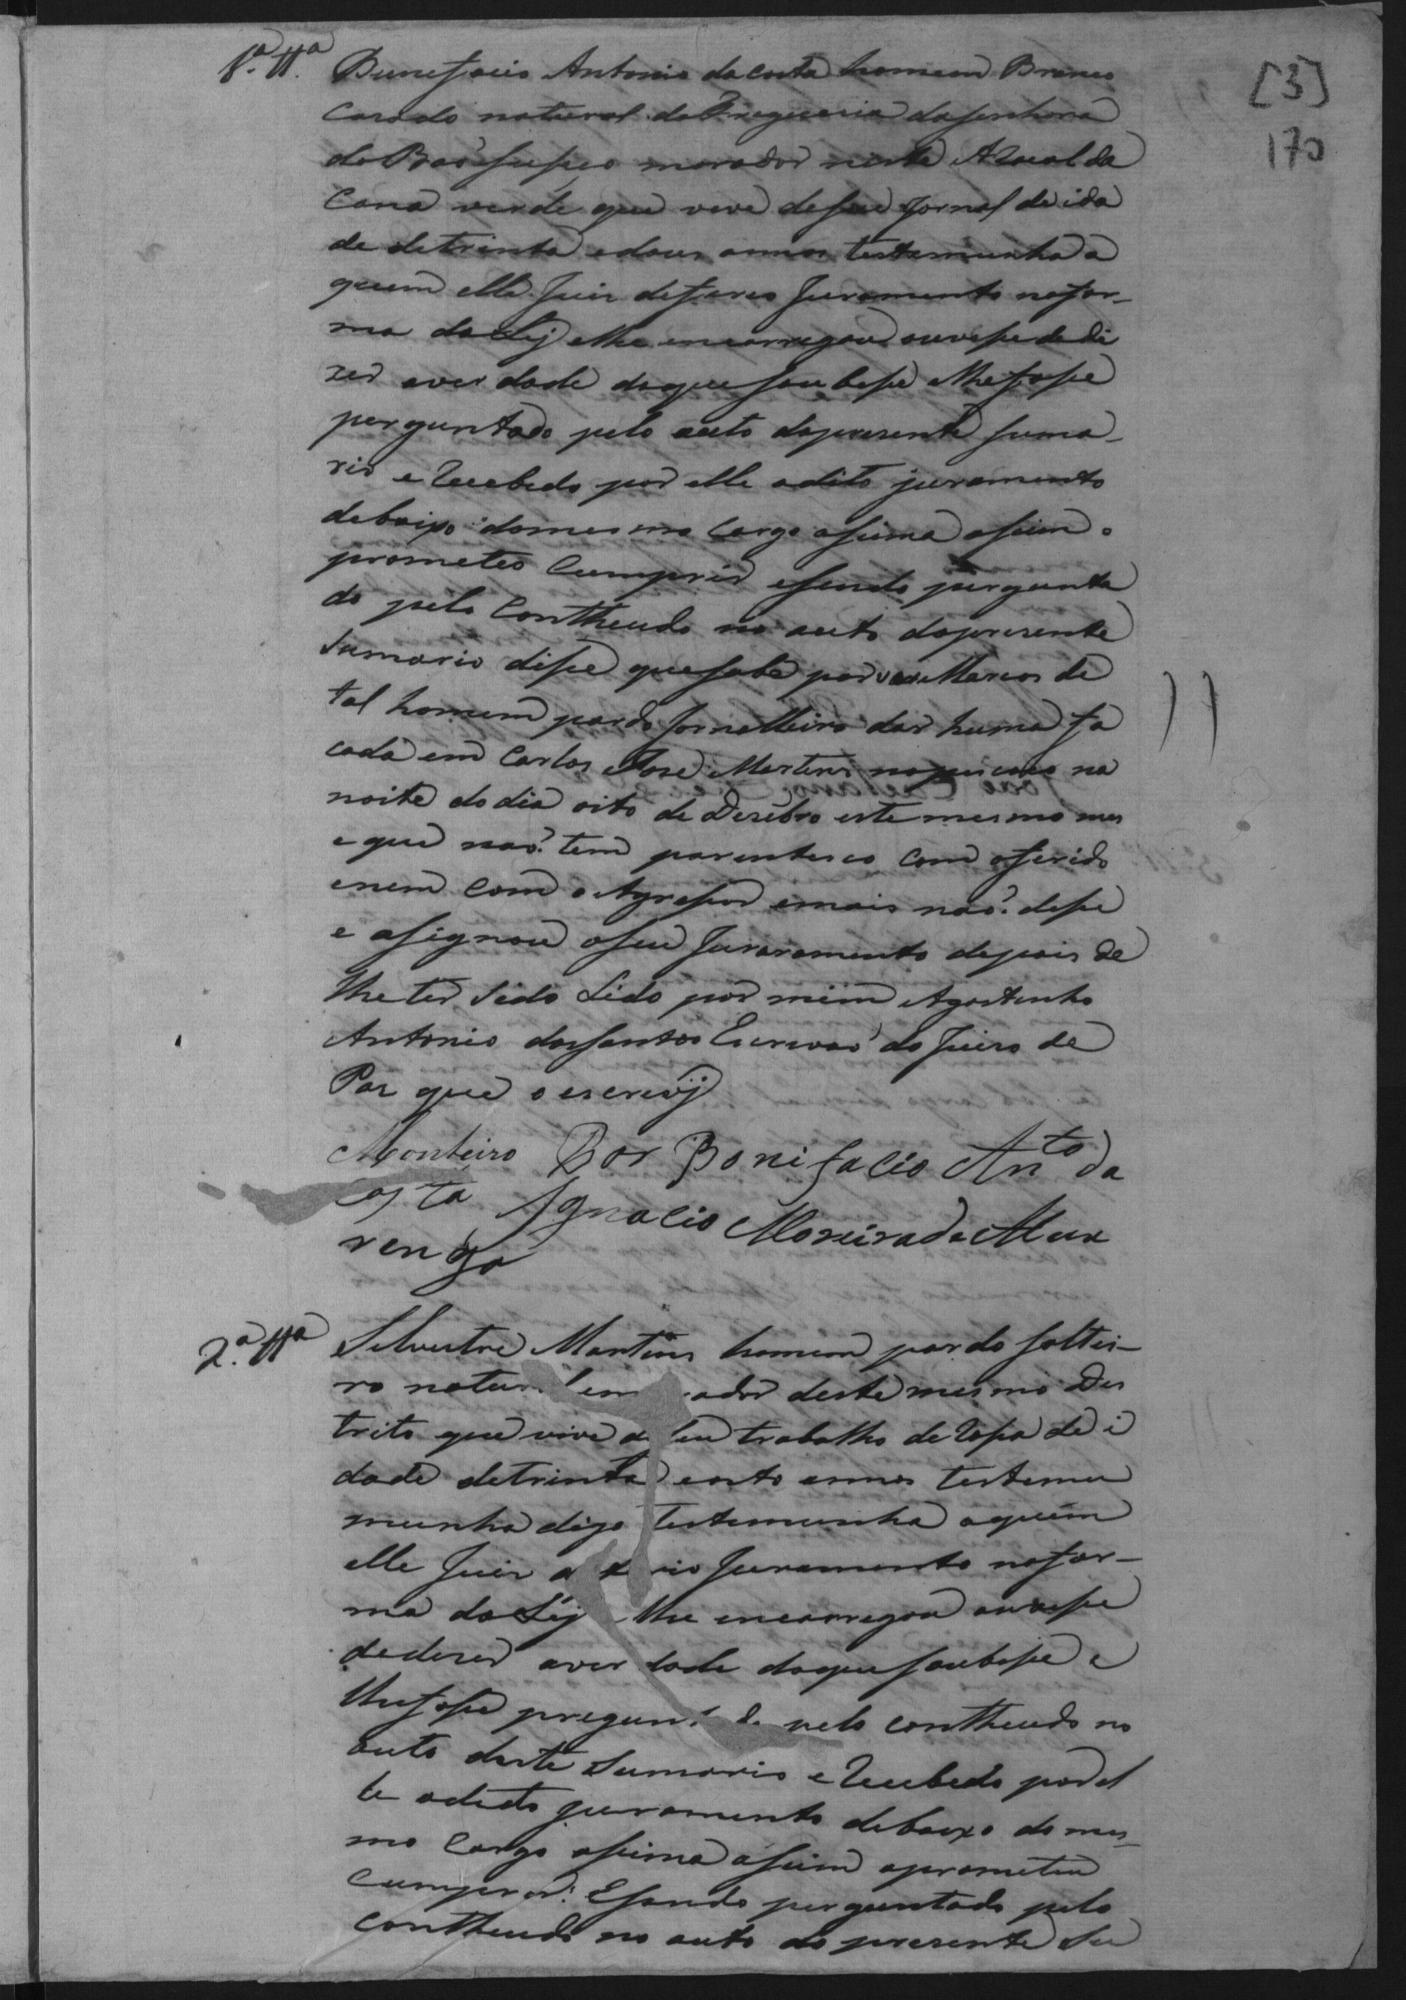 [3]
170
1.ª tt.ª Bunefacio Antonio da costa homem Branco
Casado natural da Freguecia da senhora
do morador neste Arraial da
Cana verde que vive de seu Jornal de ida
de de trinta e dous annos testemunha a
quem elle Juis deferio Juramento na for-
ma da Ley e lhe encarregou ouvese de di
zer a verdade do que soubese e lhe fose
perguntado pelo auto do presente suma-
rio e recebido por elle o dito juramento
debaixo do mesmo cargo asima asim o
prometeo cumprir e sendo pergunta
do pelo Contheudo no auto do presente
Sumario dise que sabe por ver Marcos de
tal homem pardo Jornalleiro dar huma fa
cada em Carlos Jose Martins no na
noite do dia oito de Dezebro este mesmo mes
e que naõ tem parentesco com o ferido
e nem com o Agresor e mais naõ dise
e asignou o seu Juraramento depois de
lhe ter sido Lido por mim Agostinho
Antonio dos santos Escrivaõ do Juizo de
Paz que o escrevj
Monteiro Por Bonifacio Anto da
costa Ignacio Moreira de Alva
renga
2.ª tt.ª Silvestre Martins homem pardo soltei-
ro natural e morador deste mesmo Des
trito que vive de seu trabalho de rosa de i
dade de trinta e oito annos testemu
munha digo testemunha a quem
elle Juis deferio Juramento na for-
ma da Ley e lhe encarregou ouvese
de dizer a verdade do que soubese e
lhe fose preguntado pelo contheudo no
auto deste Sumario e recebido por el
le o dito juramento debaixo do mes-
mo cargo asima asim o prometeu
cumprir. E sendo perguntado pelo
contheudo no auto do presente Su